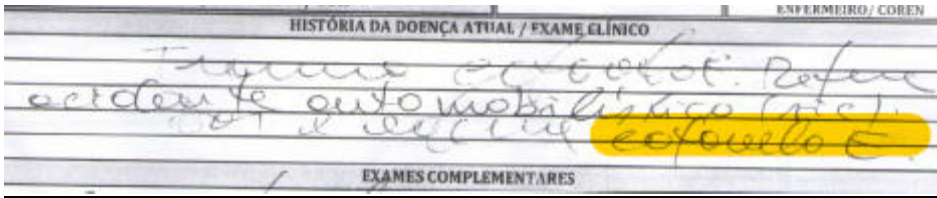 ENFERMEIRO/ COREN
HISTÓRIA DA DOENÇA ATUAL / EXAME CLÍNICO
Trauma Refere
acidente automobilístico (sic).
Dor e cotovelo E.
EXAMES COMPLEMENTARES